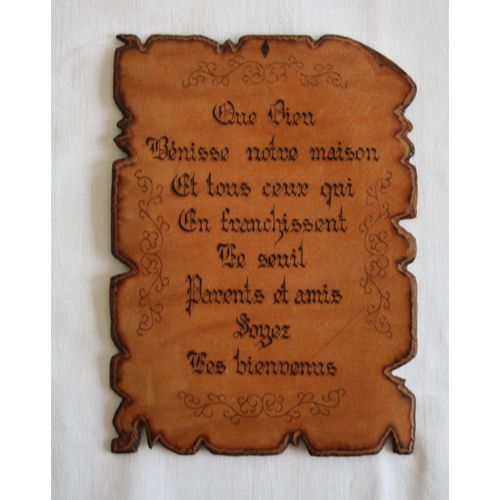 Que Dieu
Bénisse notre maison
Et tous ceux qui
En franchissent
Le seuil
Parents et amis
Soyez
Les bienvenus